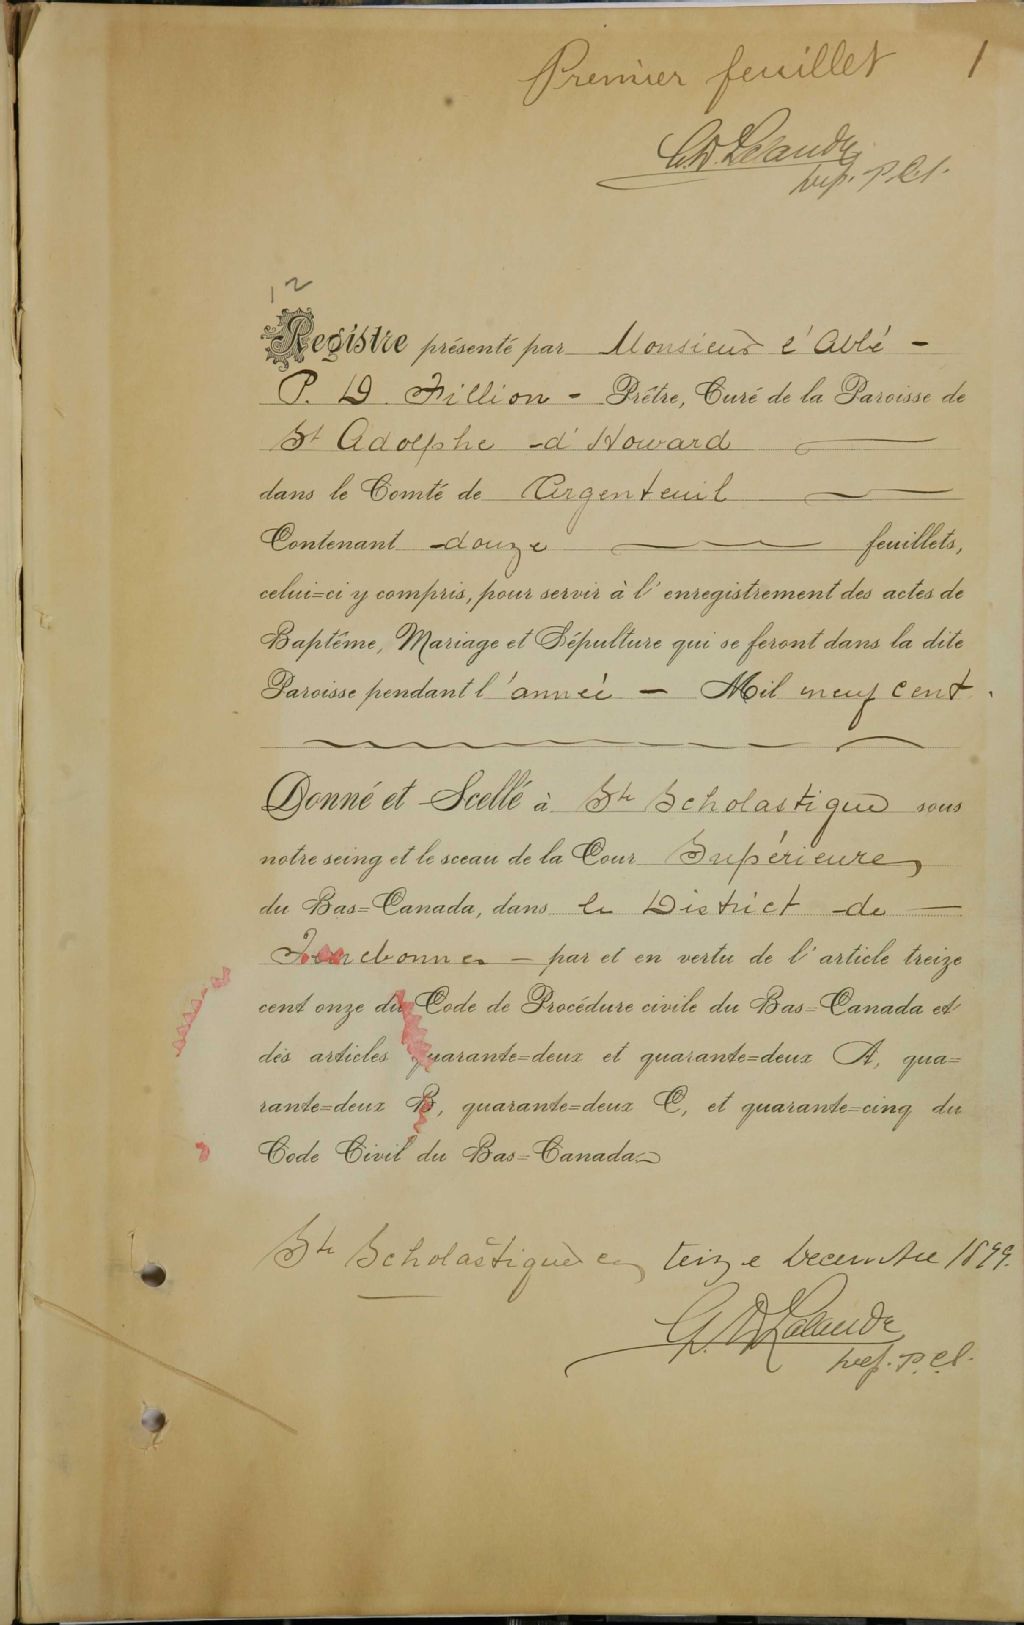 Premier feuillet 1
G. D. Lalande
Dép. P.C.S.
12
Registre présenté par Monsieur l'Abbé -
P. D. Fillion - Prêtre, Curé de la Paroisse de
St Adolphe d'Howard
dans le Comté de Argenteuil
Contenant douze feuillets,
celui=ci y compris, pour servir à l'enregistrement des actes de
Baptême, Mariage et Sépulture qui se feront dans la dite
Paroisse pendant l'année - Mil neuf cent.
Donné et Scellé à Ste Scholastique sous
notre seing et le sceau de la Cour Supérieure
du Bas=Canada, dans le District de -
Terrebonne - par et en vertu de l'article treize
cent onze du Code de Procédure civile du Bas=Canada et
des articles quarante=deux et quarante=deux A, qua=
rante=deux B, quarante=deux C, et quarante=cinq du
Code Civil du Bas=Canada.
Ste Scholastique ce treize Decembre 1899.
G. D. Lalande
Dép. P.C.S.